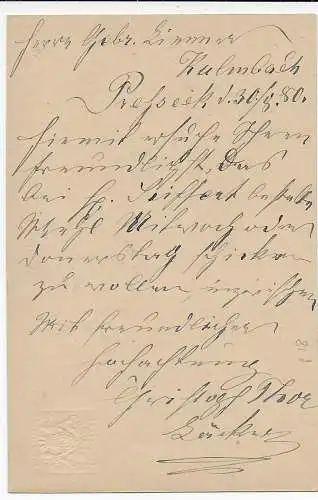 Herrn Gebr. Limmer
Kulmbach
Presseck d. 30./8. 80.
Hiermit ersuche Ihnen
freundlichst, das
bei H. Seiffert bestelte
Mehl Mitwoch oder
donerstag schicken
zu wollen,
Mit freundlicher
Hochachtung
Christoph Thor
Bäcker